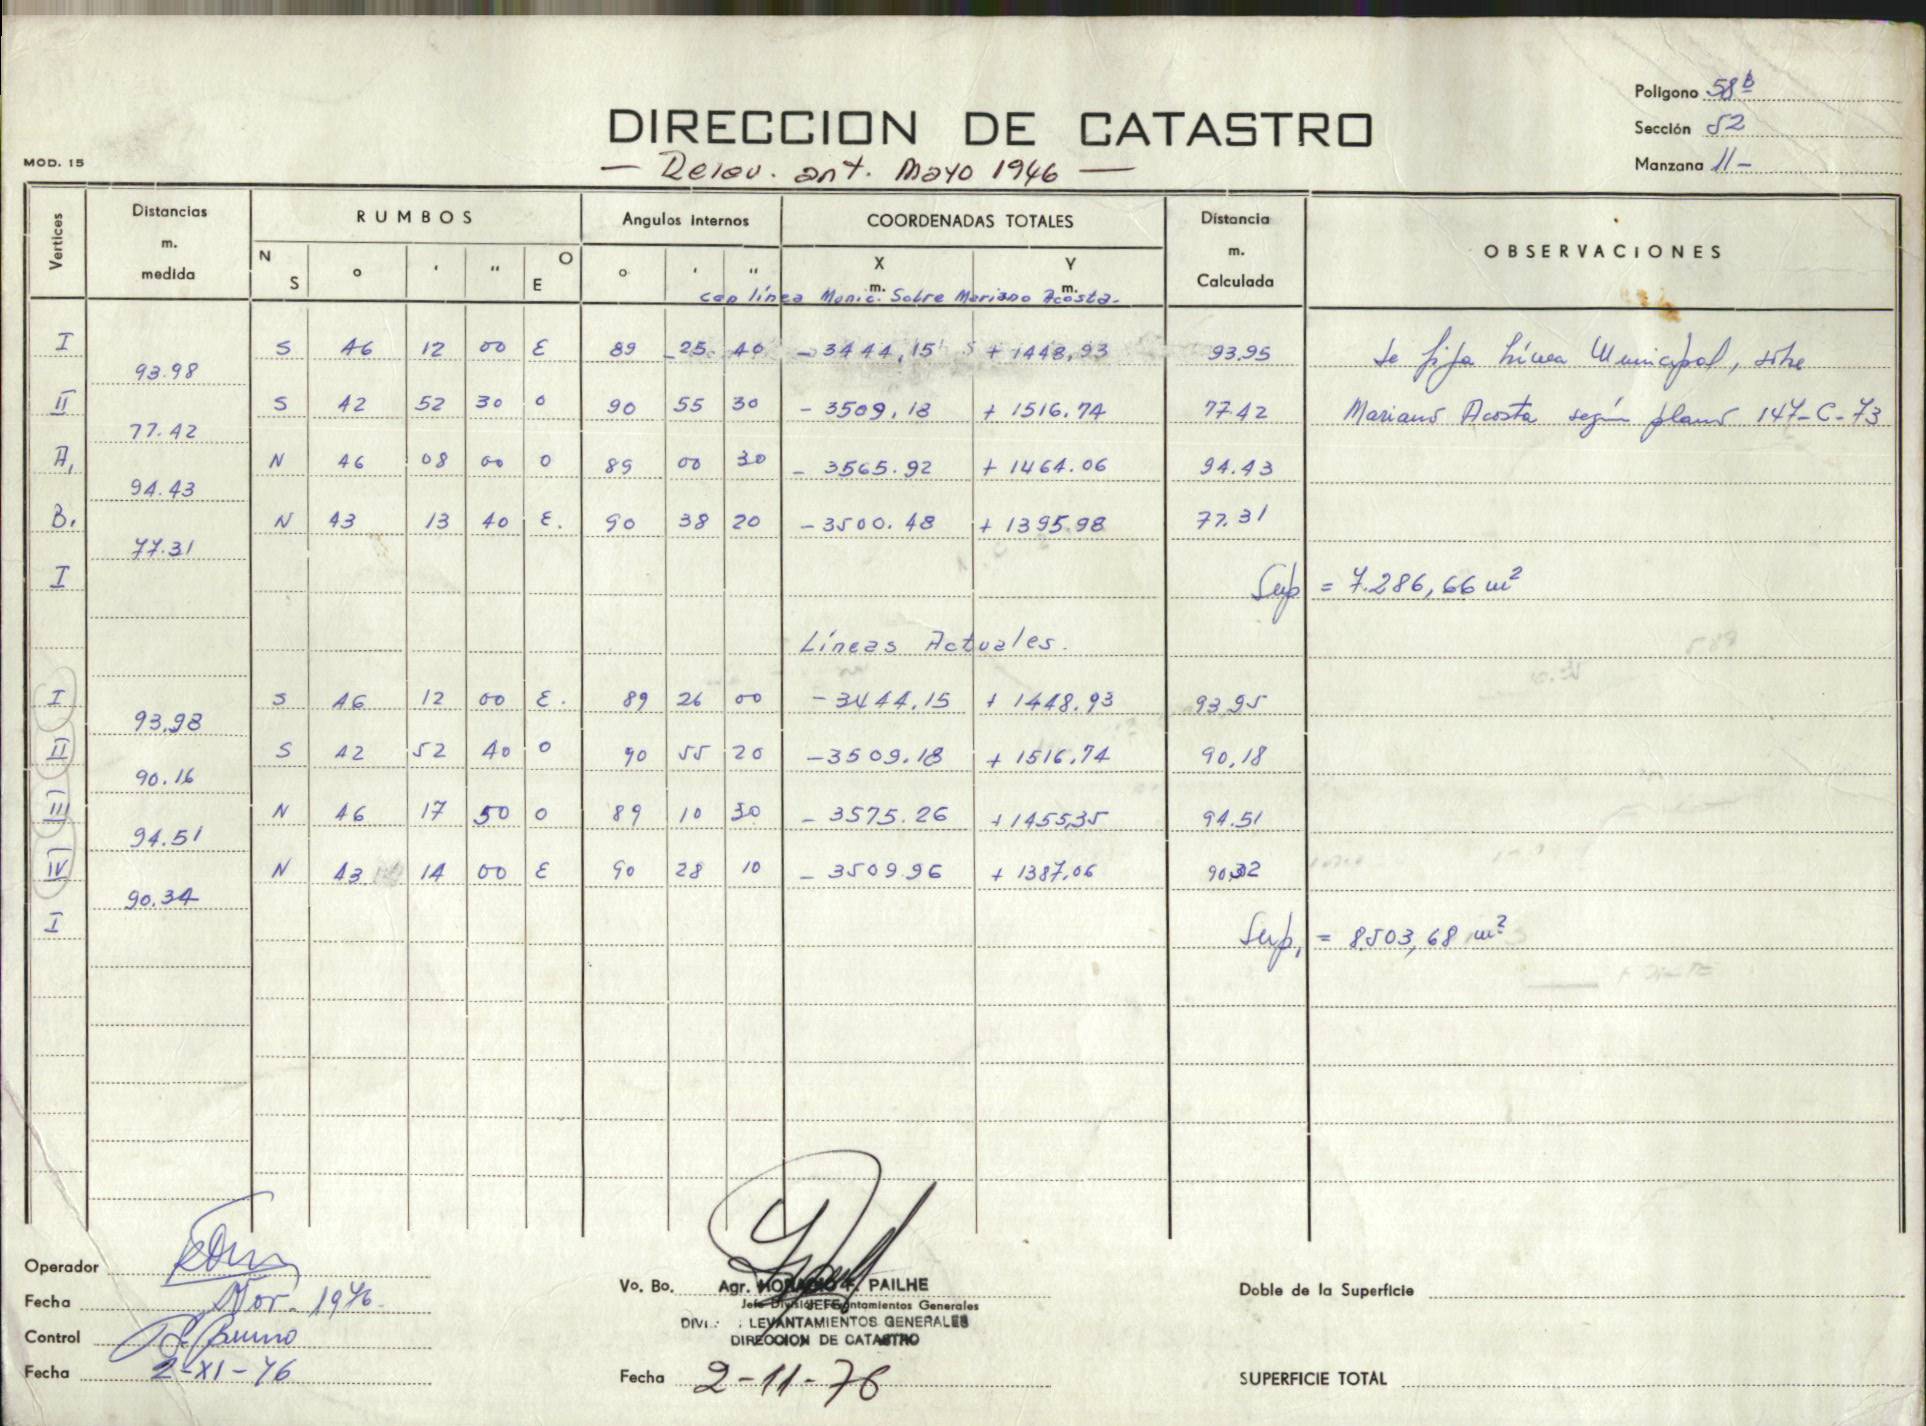 Poligono 58 b
DIRECCION DE CATASTRO
Sección 52
MOD. 15
— Relev. ant. Mayo 1946 —
Manzana 11-
Vertices
Distancias m. medida
RUMBOS
Angulos internos
COORDENADAS TOTALES
Distancia m. Calculada
OBSERVACIONES
N S ° ' " O E ° ' " X m. Y m.
con línea Munic. Sobre Mariano Acosta.
I S 46 12 00 E 89 25 40 - 3444,15 + 1448,93 93.95 Se fija Línea Municipal, sobre
93.98
II S 42 52 30 O 90 55 30 - 3509,18 + 1516.74 77.42 Mariano Acosta según plano 147-C-73
77.42
A, N 46 08 00 O 89 00 30 - 3565.92 + 1464.06 94.43
94.43
B, N 43 13 40 E. 90 38 20 - 3500.48 + 1395.98 77.31
77.31
I Sup = 7.286,66 m²
Líneas Actuales.
I S 46 12 00 E. 89 26 00 - 3444,15 + 1448.93 93.95
93,98
II S 42 52 40 O 90 55 20 - 3509.18 + 1516,74 90,18
90.16
III N 46 17 50 O 89 10 30 - 3575.26 + 1455,35 94.51
94.51
IV N 43 14 00 E 90 28 10 - 3509.96 + 1387,06 90,32
90.34
I Sup, = 8.503,68 m²
Operador
Fecha Nov. 1976.
Control Bruno
Fecha 2-XI-76
Vo. Bo. Agr. HORACIO F. PAILHE
Jefe División Levantamientos Generales
JEFE
DIVI.: LEVANTAMIENTOS GENERALES
DIRECCION DE CATASTRO
Fecha 2-11-76
Doble de la Superficie
SUPERFICIE TOTAL